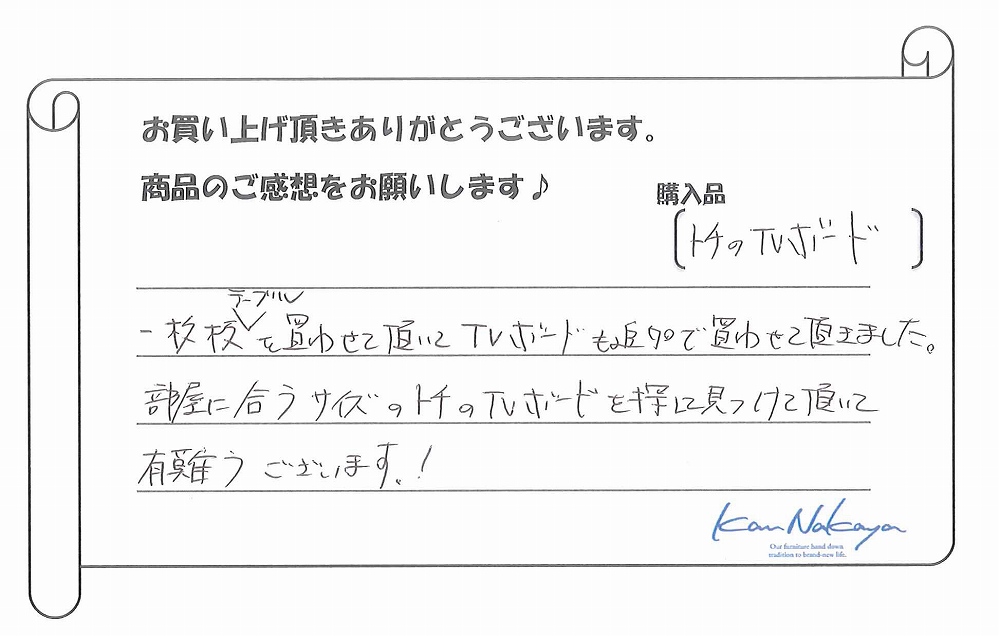 お買い上げ頂きありがとうございます。
商品のご感想をお願いします♪
購入品
トチのTVボード
テーブル
一枚板を買わせて頂いてTVボードも追加で買わせて頂きました。
部屋に合うサイズのトチのTVボードを探して見つけて頂いて
有難うございます。!
Kan Nakaya
Our furniture hand down
tradition to brand-new life.